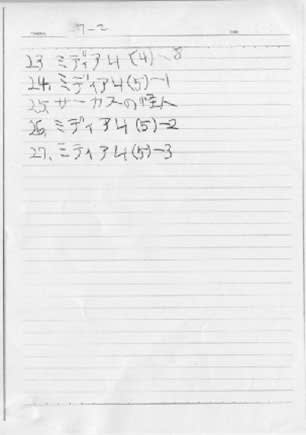 7-2
23 ミディアム(4)-8
24, ミディアム(5)-1
25, サーカスの怪人
26, ミディアム(5)-2
27, ミディアム(5)-3